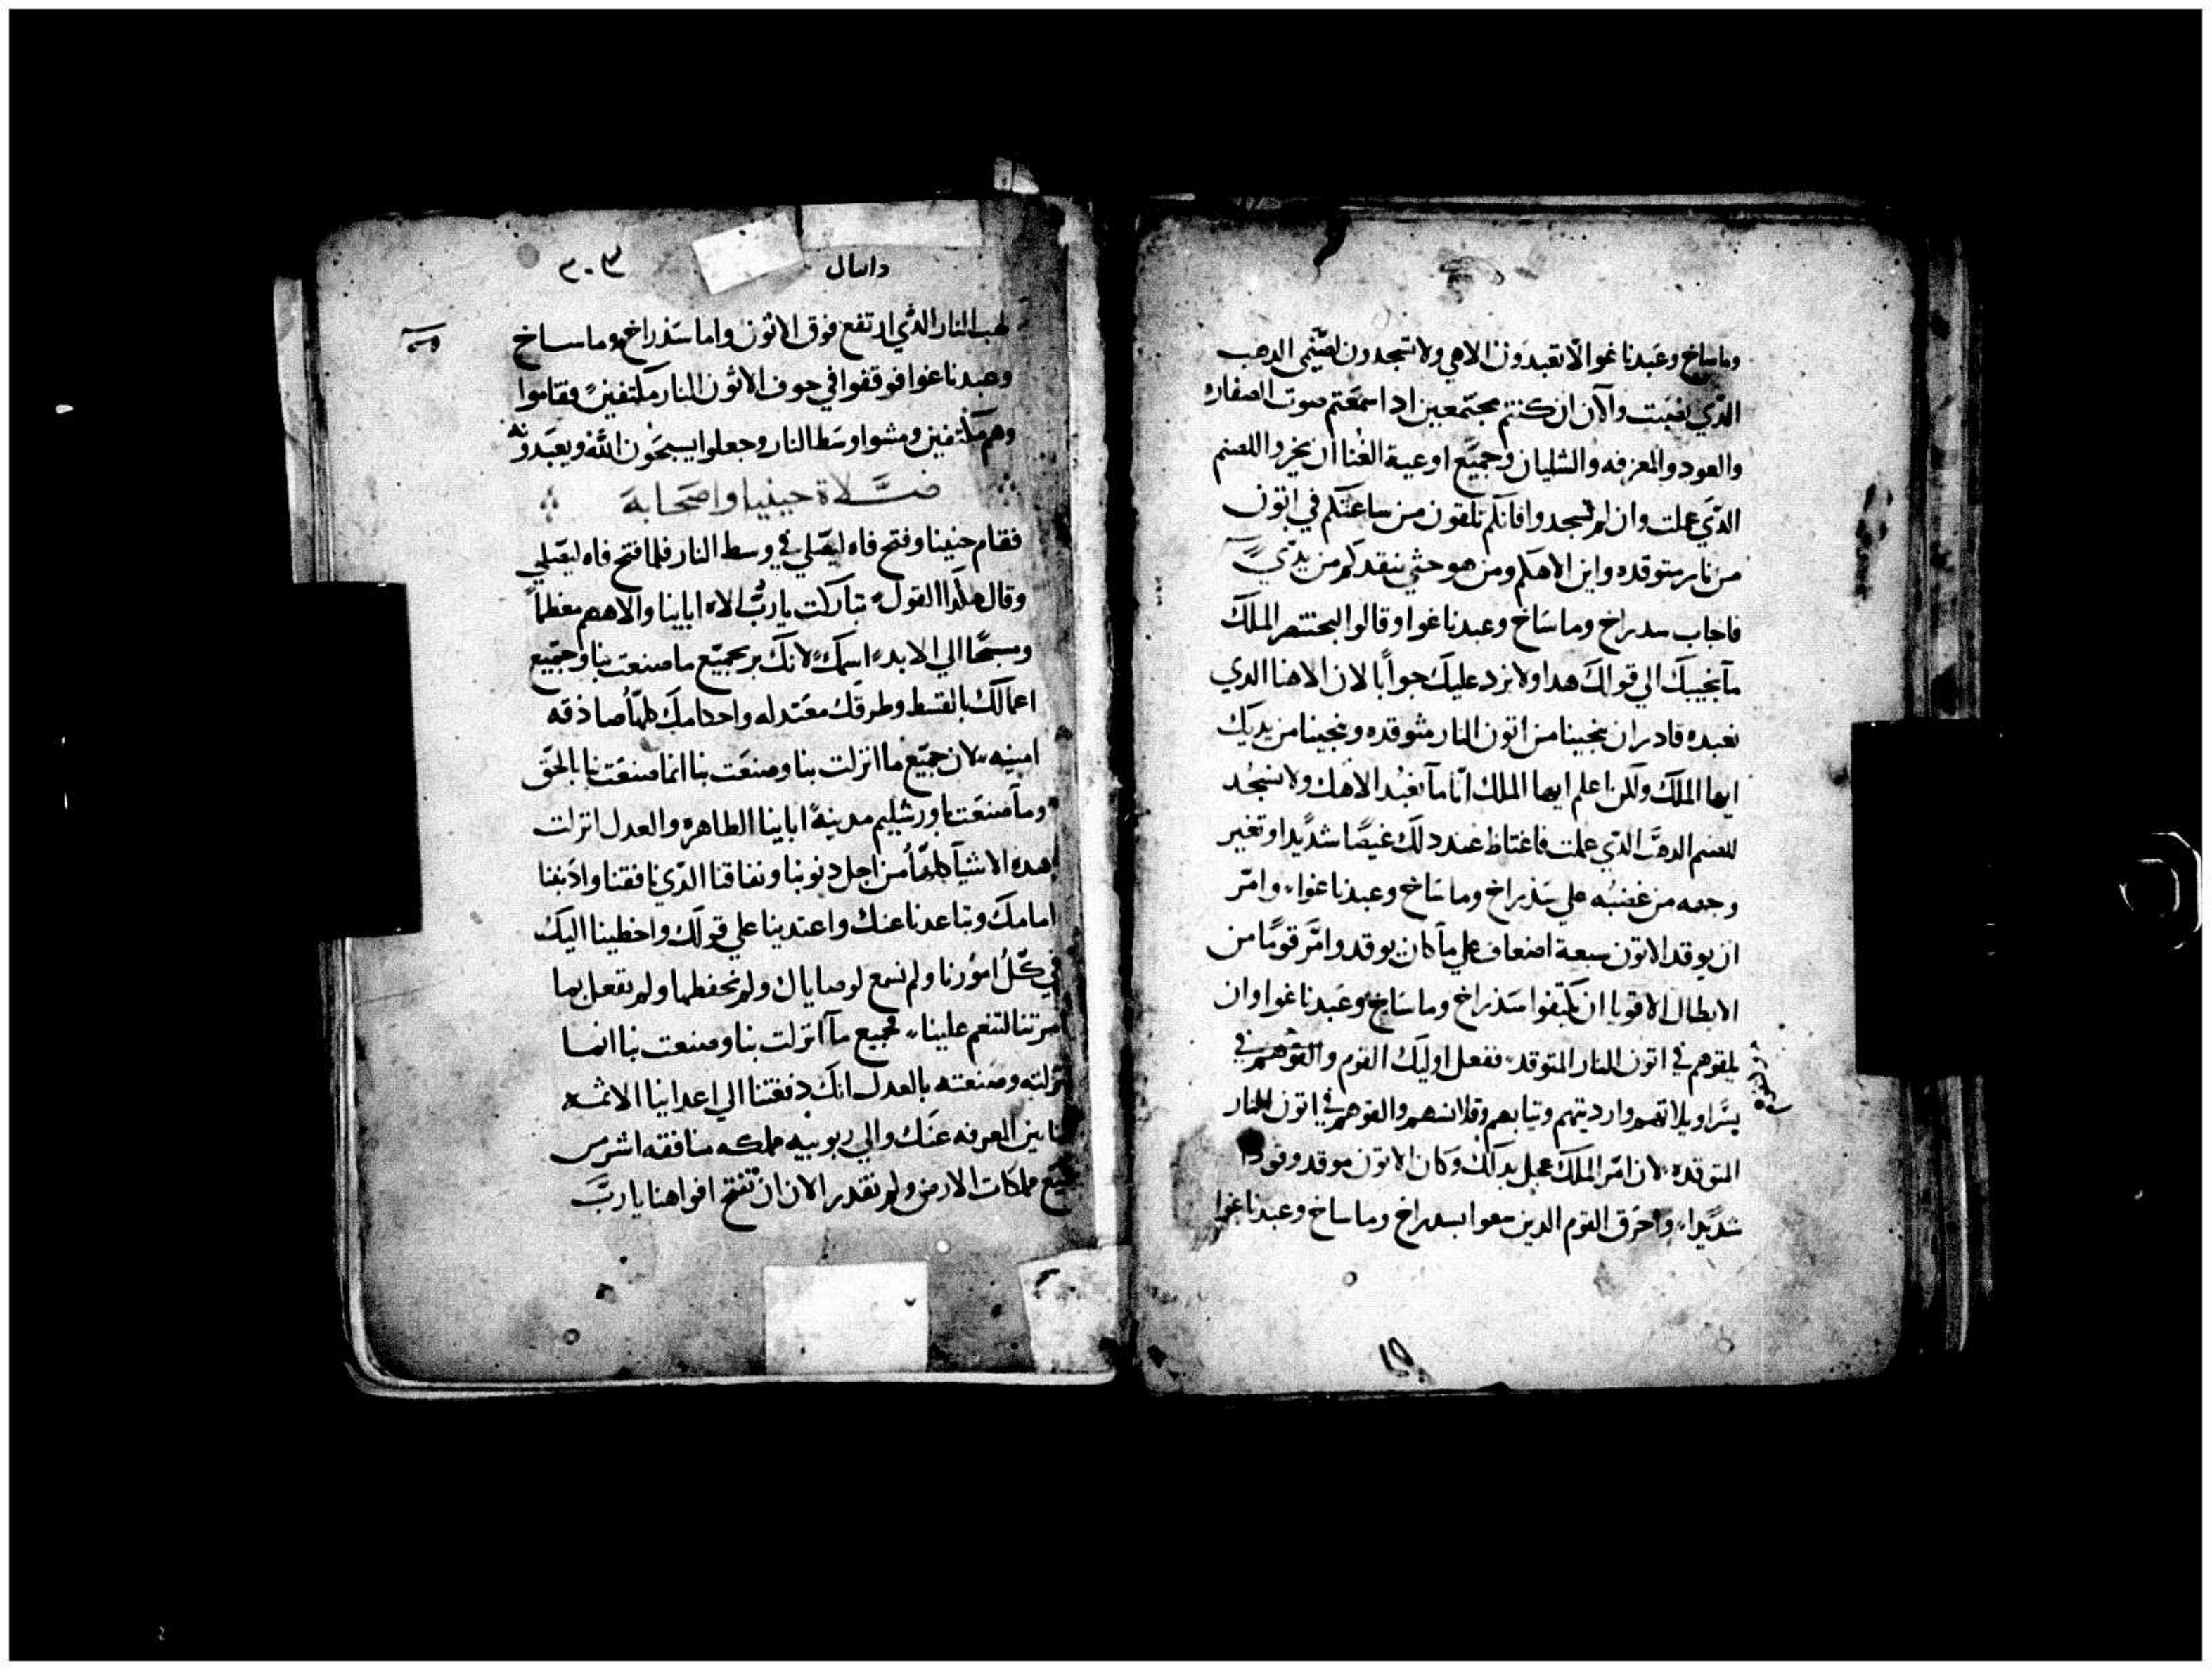 وماساخ وعبدناغوا لا تعبدون الاهي ولا تسجدون لصنمي الدهب
الدي نصبت والان ان كنتم مجتمعين ادا سمعتم صوت الصفاره
والعود والمعزفه والشليان وجميع اوعية الغنا ان تخروا للصنم
الدي عملت وان لم تسجدوا فانكم تلقون من ساعتكم في اتون
من نار متوقده واين الاهكم ومن هو حتي ينقدكم من يدي
فاجاب سدراخ وماساخ وعبدناغوا وقالوا لبختنصر الملك
ما نجيبك الي قولك هدا ولا نرد عليك جوابا لان الاهنا الدي
نعبده قادر ان ينجينا من اتون النار متوقده وينجينا من يديك
ايها الملك ولكن اعلم ايها الملك انا ما نعبد الاهك ولا نسجد
للصنم الدهب الدي عملت فاغتاظ عند دلك غيضا شديدا وتغير
وجهه من غضبه علي سدراخ وماساخ وعبدناغوا وامر
ان يوقد الاتون سبعة اضعاف علي ما كان يوقد وامر قوما من
الابطال الاقويا ان يكتفوا سدراخ وماساخ وعبدناغوا وان
يلقوهم في اتون النار المتوقد ففعل اوليك القوم والقوهم في
بسراويلاتهم وارديتهم وتيابهم وقلانسهم والقوهم في اتون النار
المتوقده لان امر الملك عجل بدلك وكان الاتون موقد وقودا
شديدا واحرق القوم الدين سعوا بسدراخ وماساخ وعبدناغوا
دانيال
٣٠٣
لهب النار الدي ارتفع فوق الاتون واما سدراخ وماساخ
وعبدناغوا فوقفوا في جوف الاتون النار مكتفين فقاموا
وهم مكتفين ومشوا وسط النار وجعلوا يسبحون الله ويعبدونه
صلاة حينيا واصحابه
فقام حنينا وفتح فاه ليصلي في وسط النار فلما فتح فاه ليصلي
وقال هكدا القول تباركت يا رب الاه اباينا والاههم معظما
ومسبحا الي الابد اسمك لانك بر بجميع ما صنعت بنا وجميع
اعمالك بالقسط وطرقك معتدله واحكامك كلها صادقه
امينه لان جميع ما انزلت بنا وصنعت بنا انما صنعت بنا بالحق
وما صنعت باورشليم مدينة اباينا الطاهره والعدل انزلت
هده الاشيا كلها من اجل دنوبنا ونفاقنا الدي نافقنا وادنبنا
امامك وتباعدنا عنك واعتدينا علي قولك واخطينا اليك
في كل امورنا ولم نسمع لوصاياك ولم نحفظها ولم نفعل بما
امرتنا لتنعم علينا فجميع ما انزلت بنا وصنعت بنا انما
نزلته وصنعته بالعدل انك دفعتنا الي اعداينا الاثمه
العرفه عنك والي ربوبيه ملكه منافقه اشر من
جميع ملكات الارض ولم نقدر الان ان نفتح افواهنا يا رب